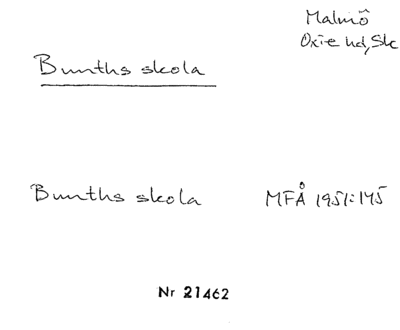 Malmö
Oxie hd, Sk
Bunths skola
Bunths skola MFÅ 1951:145
Nr 21462